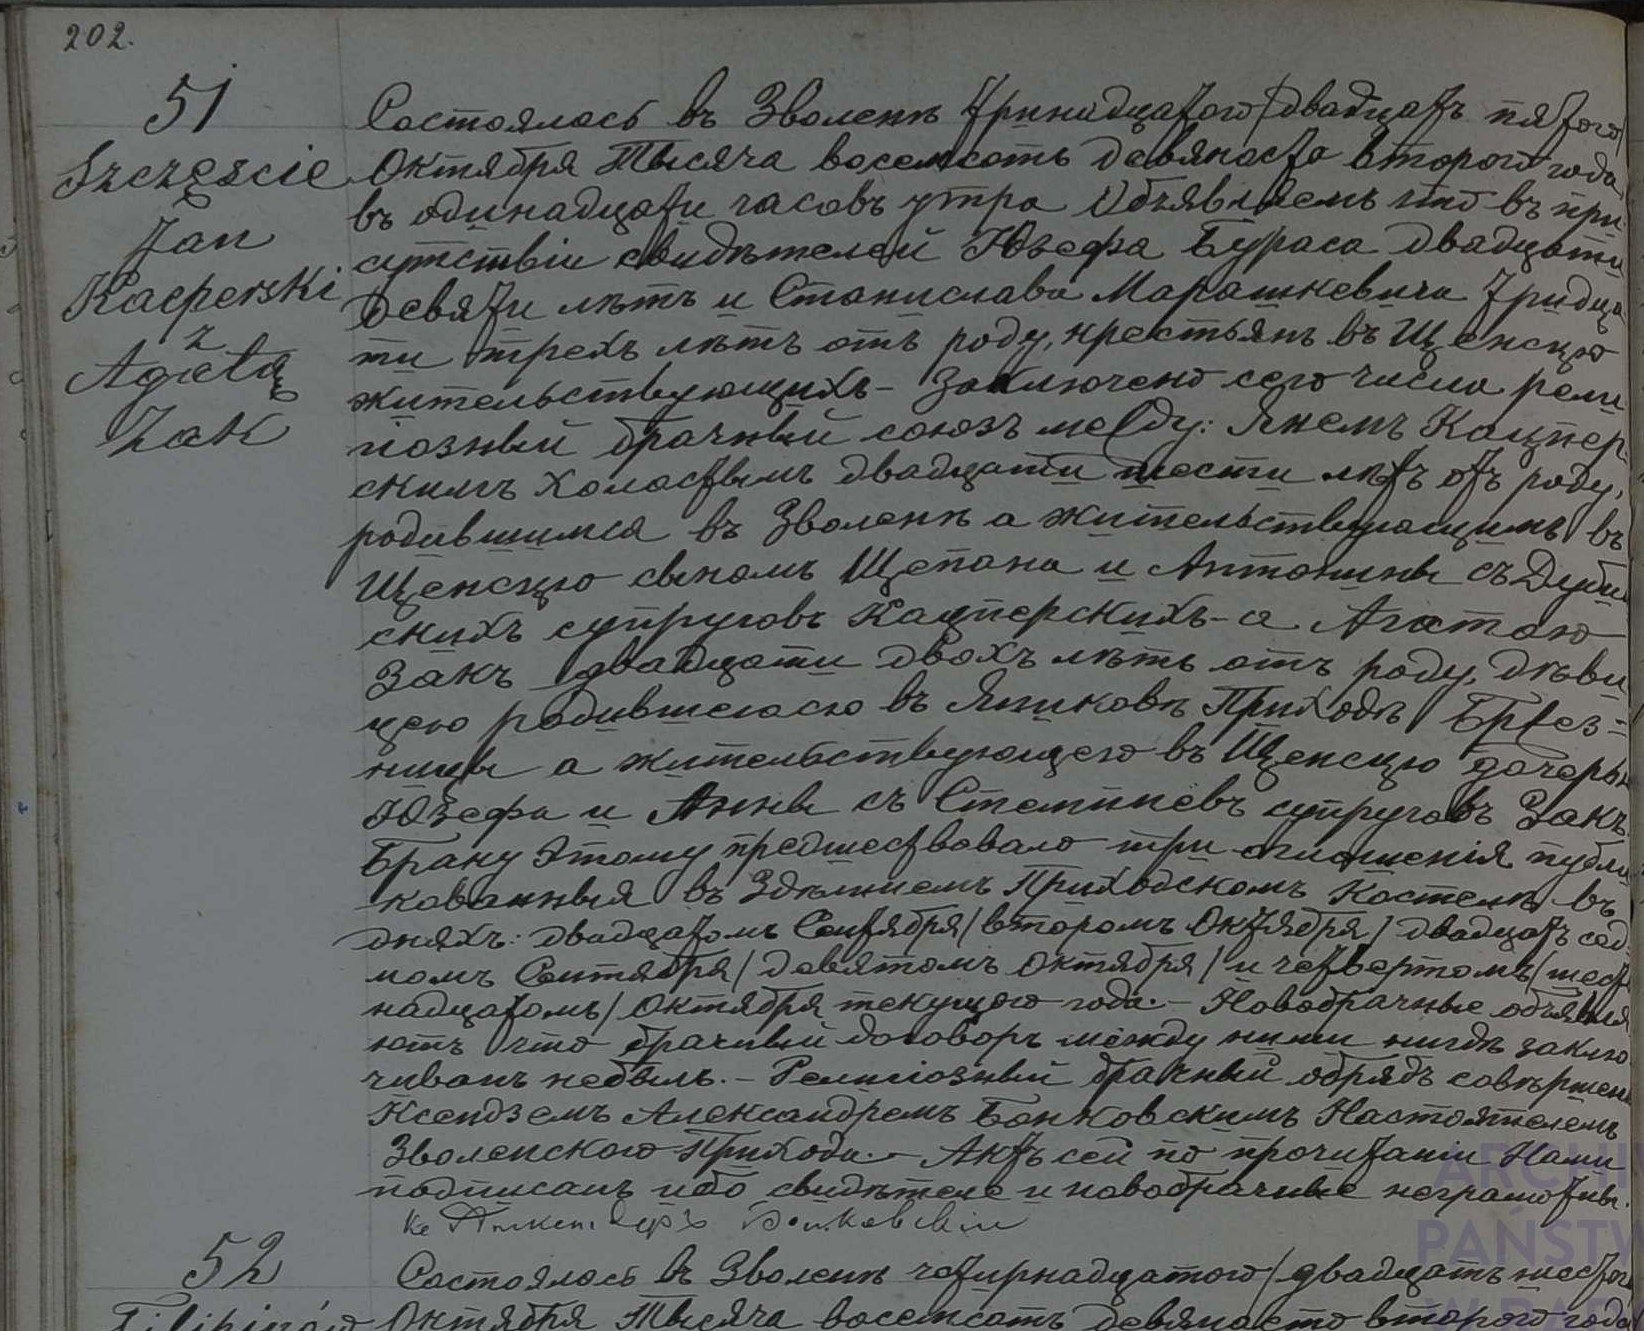 202.
51
Szczęście
Jan
Kacperski
z
Agatą
Zak
Состоялось въ Зволенѣ тринадцатого /двадцать пятого/
Октября Тысяча восемсотъ девяносто второго года
въ одинадцати часовъ утра Объявляемъ что въ при
сутствіи свидѣтелей Юзефа Бураса двадцати
девяти лѣтъ и Станислава Марашкевича тридца
ти трехъ лѣтъ отъ роду, крестьянъ въ Щенсцю
жительствующихъ – Заключено сего числа рели
гіозный брачный союзъ между: Янемъ Кацпер
скимъ холостымъ двадцати шести лѣтъ отъ роду,
родившимся въ Зволенѣ а жительствующимъ въ
Щенсцю сыномъ Щепана и Антонины съ Дуби
скихъ супруговъ Кацперскихъ – а Агатою
Закъ двадцати двохъ лѣтъ отъ роду, дѣви
цею родившеюсю въ Яшковѣ Приходѣ Брез=
ницы а жительствующего въ Щенсцю дочерью
Юзефа и Анны съ Стемпневъ супруговъ Закъ.
Браку Этому предшествовало три оглошенія публи
кованныя въ Здѣшнемъ Приходскомъ Костелѣ въ
дняхъ: двадцатомъ Сентября /второмъ Октября/ двадцать сед
момъ Сентября / девятомъ Октября / и четвертомъ /шест
надцатомъ/ Октября текущого года. – Новобрачные объявля
ютъ что брачный договоръ между ними нигдѣ заклю
чиванъ небылъ. – Религіозный брачный обрядъ совѣршенъ
Ксендземъ Александремъ Бонковскимъ Настоятелемъ
Зволенского Прихода. – Актъ сей по прочитаніи Нами
подписанъ ибо свидѣтеле и новобрачные неграмотны.
Кс Александръ Бонковскій
52
Состоялось въ Зволенѣ четырнадцатого /двадцать шестого
Октября Тысяча восемсотъ девяносто второго года
ARCHI
PAŃSTW
W RAD